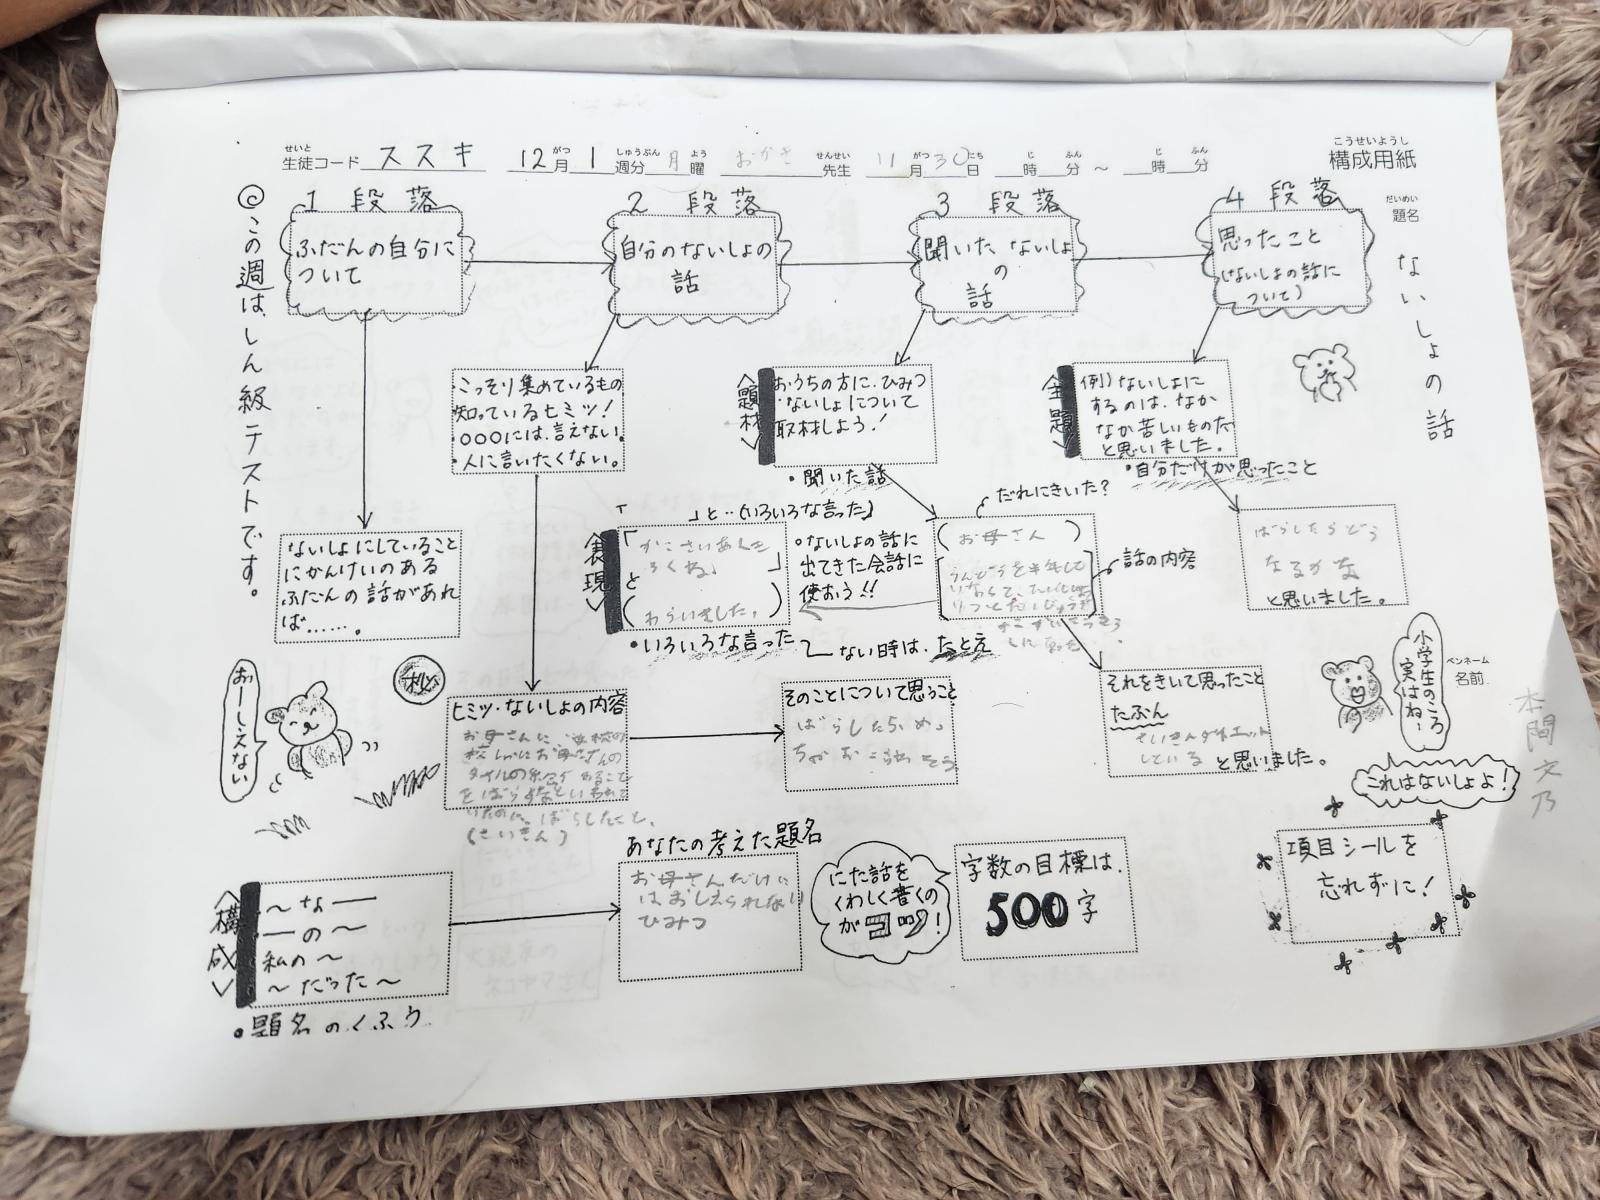 構成用紙
こうせいようし
せいと
生徒コード ススキ 12月1週分月曜 先生 11月30日 時 分 ～ 時 分
がつ しゅうぶん よう せんせい がつ にち じ ふん じ ふん
だいめい
題名
ないしょの話
◎この週は、しん級テストです。
1 段落
ふだんの自分に
ついて
2 段落
自分のないしょの
話
3 段落
聞いたないしょ
の
話
4 段落
思ったこと
(ないしょの話に
ついて)
こっそり集めているもの
知っているヒミツ！
・○○○には、言えない。
・人に言いたくない。
<題材>
おうちの方に、ひみつ
・ないしょについて
取材しよう！
・聞いた話
<主題>
例)ないしょに
するのは、なか
なか苦しいものだ
と思いました。
・自分だけが思ったこと
ないしょにしていること
にかんけいのある
ふだんの話があれ
ば……。
「 」と‥(いろいろな言った)
<表現>
「
」
と
(わらいました。)
・いろいろな言った
・ないしょの話に
出てきた会話に
使おう!!
ない時は、たとえ
だれにきいた？
(お母さん)
話の内容
ばらしたらどう
なるかな
と思いました。
おーしえない
秘
ヒミツ・ないしょの内容
お母さんに
をばらすなといわれて
いたのに、ばらしたこと、
(さいきん)
そのことについて思うこと
ばらしたらめっ
ちゃおこられそう。
それをきいて思ったこと
たぶん
さいきんダイエット
している と思いました。
小学生のころ
実はね…
ペンネーム
名前
本間文乃
これはないしょよ！
<構成>
～な――
――の～
私の～
～だった～
・題名のくふう
あなたの考えた題名
お母さんだけに
はおしえられない
ひみつ
にた話を
くわしく書くの
がコツ！
字数の目標は、
500字
項目シールを
忘れずに！